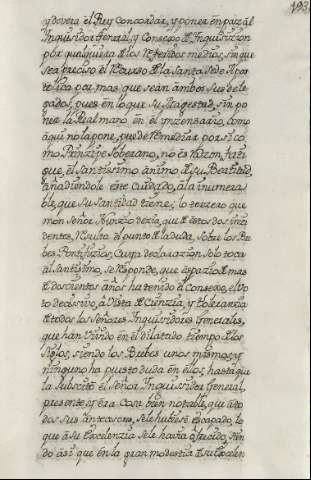 193
y devera el Rey Concordar, y poner en paz al
Inquisidor General, y Consejo de Inquisizion
por qualquiera de los referidos medios, sin que
sea preciso el recurso a la Santa Sede Apos
tolica por mas que sean ambos sus dele
gados, pues en lo que su Magestad, sin po
ner la Real mano en el ynzensario, como
aqui no la pone, puede remediar por si co
mo Prinzipe Soberano, no es razon, fati
gue, el Santissimo animo de su Beatitud,
añadiendole este Cuidado, a la inumera
ble, que Su Santidad tiene; lo terzero que
mon Señor Nunzio dezia, que de estos dos inci
dentes, resulta el punto de la duda, sobre los Bre
bes Pontifizios, Cuya declarazion Solo toca
al Santissimo, se responde, que espazio de mas
de doscientos años ha tenido el Consejo, el Vo
to decisivo, a Vista de Ciencia, y tolerancia
de todos los Señores Inquisidores Generales,
que han Vivido en el dilatado tiempo de los
Siglos, siendo los Brebes unos mismos, y
ninguno ha puesto duda en ellos, hasta que
la Suscitó el Señor Inquisidor General,
presente y era Cosa bien notable, que a to
dos sus antecesores, se le hubiese escapado, lo
que a su Excelenzia se le havia ofrecido, sien
do asi que en la gran modestia de su Excelen